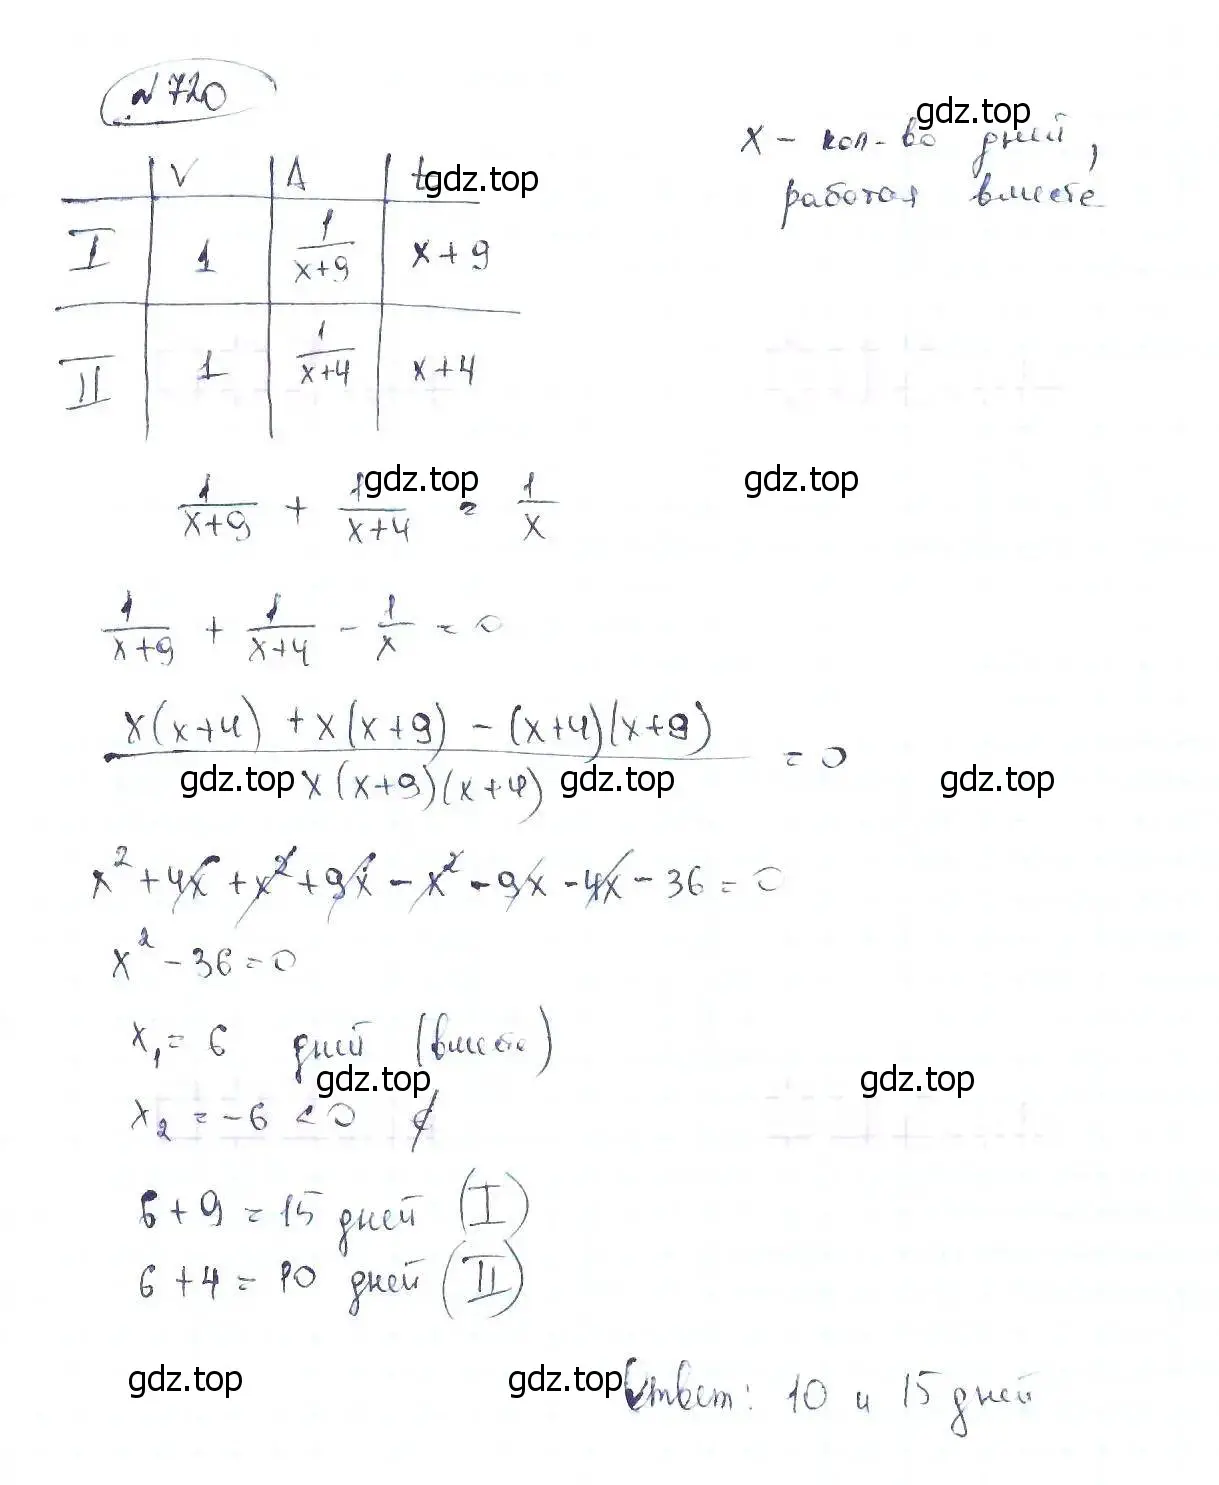 № 720
x – кол-во дней,
работая вместе
V A t
I 1 1/(x+9) x+9
II 1 1/(x+4) x+4
1/(x+9) + 1/(x+4) = 1/x
1/(x+9) + 1/(x+4) - 1/x = 0
(x(x+4) + x(x+9) - (x+4)(x+9))/(x(x+9)(x+4)) = 0
x² + 4x + x² + 9x - x² - 9x - 4x - 36 = 0
x² - 36 = 0
x₁ = 6 дней (вместе)
x₂ = -6 < 0 ∉
6 + 9 = 15 дней (I)
6 + 4 = 10 дней (II)
Ответ: 10 и 15 дней
gdz.top
gdz.top
gdz.top
gdz.top
gdz.top
gdz.top
gdz.top
gdz.top
gdz.top
gdz.top
gdz.top